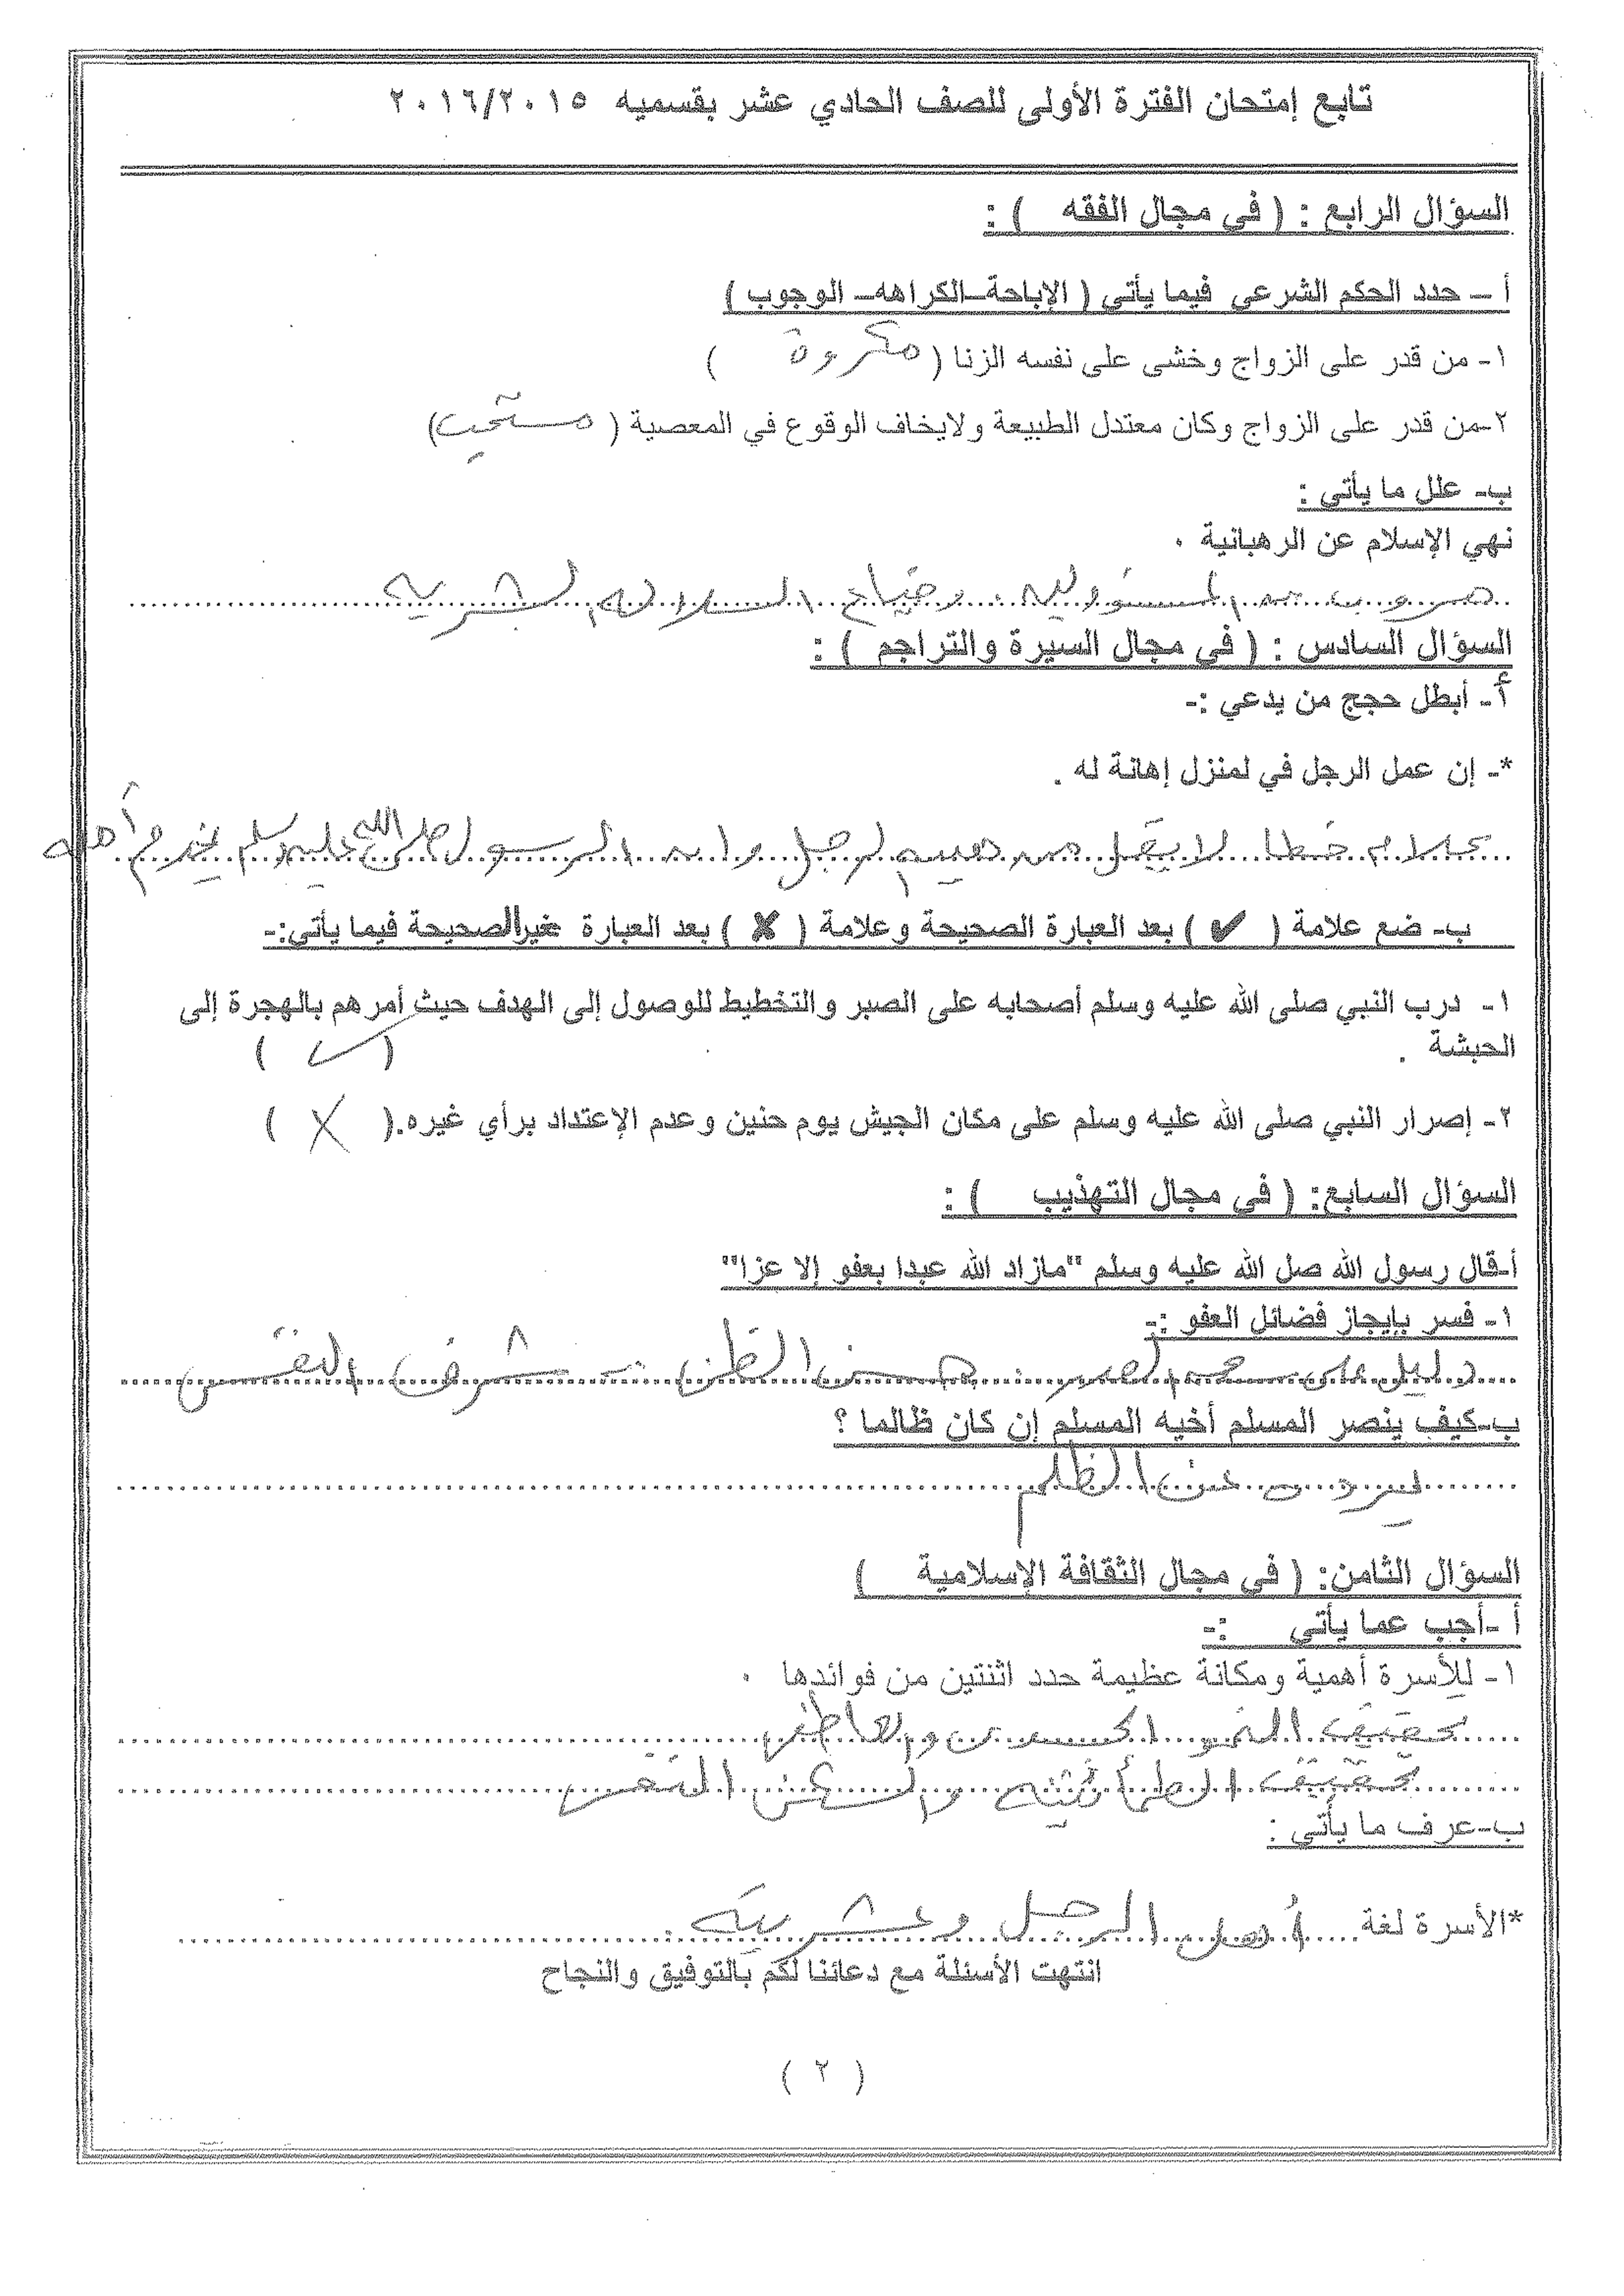 تابع إمتحان الفترة الأولى للصف الحادي عشر بقسميه ٢٠١٦/٢٠١٥
السؤال الرابع : ( في مجال الفقه ) :
أ – حدد الحكم الشرعي فيما يأتي ( الإباحة–الكراهه– الوجوب )
١- من قدر على الزواج وخشى على نفسه الزنا ( مكروة )
٢-من قدر على الزواج وكان معتدل الطبيعة ولايخاف الوقوع في المعصية ( مستحب )
ب- علل ما يأتي :
نهي الإسلام عن الرهبانية .
هروب من المسئولية . وضياع السلالة البشرية
السؤال السادس : ( في مجال السيرة والتراجم ) :
أ- أبطل حجج من يدعي :-
*- إن عمل الرجل في لمنزل إهانة له .
كلام خطا لا يقلل من هيبة الرجل وان الرسول صلى الله عليه وسلم يخدم أهله
ب- ضع علامة ( ✔ ) بعد العبارة الصحيحة وعلامة ( ✘ ) بعد العبارة غيرالصحيحة فيما يأتي:-
١- درب النبي صلى الله عليه وسلم أصحابه على الصبر والتخطيط للوصول إلى الهدف حيث أمرهم بالهجرة إلى
الحبشة . ( ✓ )
٢- إصرار النبي صلى الله عليه وسلم على مكان الجيش يوم حنين وعدم الإعتداد برأي غيره.( X )
السؤال السابع: ( في مجال التهذيب ) :
أ-قال رسول الله صل الله عليه وسلم "مازاد الله عبدا بعفو إلا عزا"
١- فسر بإيجاز فضائل العفو :-
دليل على الصدر . حسن الظن - شرف النفس
ب-كيف ينصر المسلم أخيه المسلم إن كان ظالما ؟
عن الظلم
السؤال الثامن: ( في مجال الثقافة الإسلامية )
أ -أجب عما يأتي :-
١- للأسرة أهمية ومكانة عظيمة حدد اثنتين من فوائدها .
تحقيق النمو الجسدي والعاطفي
تحقيق الطمأنينة والسكن النفسي
ب-عرف ما يأتي :
*الأسرة لغة أهل الرجل وعشريته .
انتهت الأسئلة مع دعائنا لكم بالتوفيق والنجاح
( ٢ )